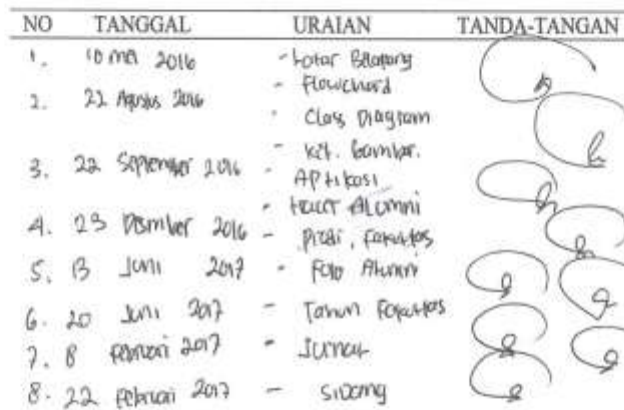 NO TANGGAL URAIAN TANDA-TANGAN
1. 10 Mei 2016 - Latar Belakang
- Flowchard
2. 22 Agustus 2016
- Class Diagram
- Ket. Gambar.
3. 22 September 2016 - Aplikasi
- Alumni
4. 23 Desmber 2016 - Prodi, Fakultas
5. 13 Juni 2017 - Foto Alumni
6. 20 Juni 2017 - Tahun Fakultas
7. 8 Februari 2017 - Jurnal
8. 22 Februari 2017 - Sidang